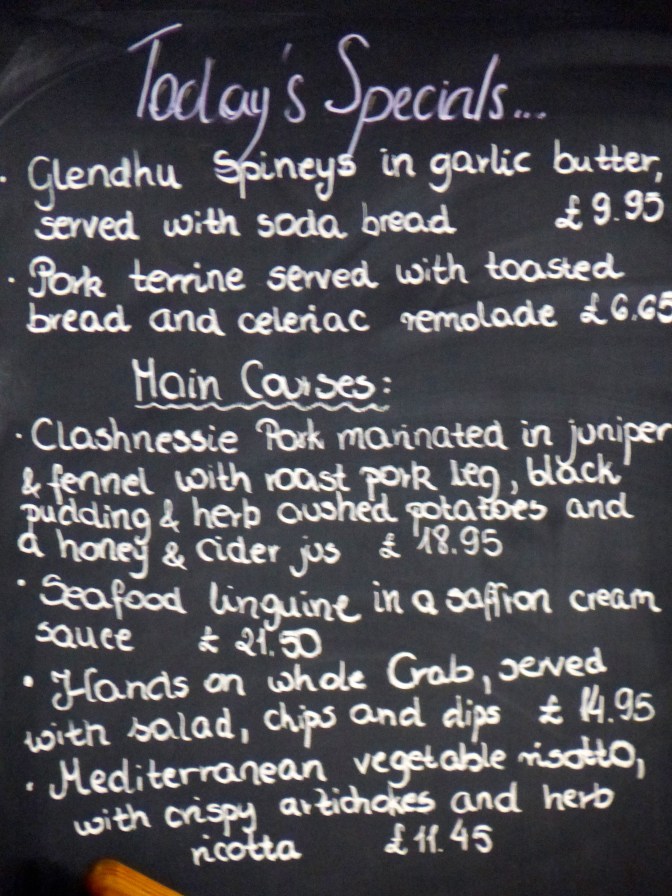 Today's Specials...
· Glendhu Spineys in garlic butter,
served with soda bread £9.95
· Pork terrine served with toasted
bread and celeriac remolade £6.65
Main Courses:
· Clashnessie Pork marinated in juniper
& fennel with roast pork leg, black
pudding & herb crushed potatoes and
a honey & cider jus £18.95
· Seafood linguine in a saffron cream
sauce £21.50
· Hands on whole Crab, served
with salad, chips and dips £14.95
· Mediterranean vegetable risotto,
with crispy artichokes and herb
ricotta £11.45